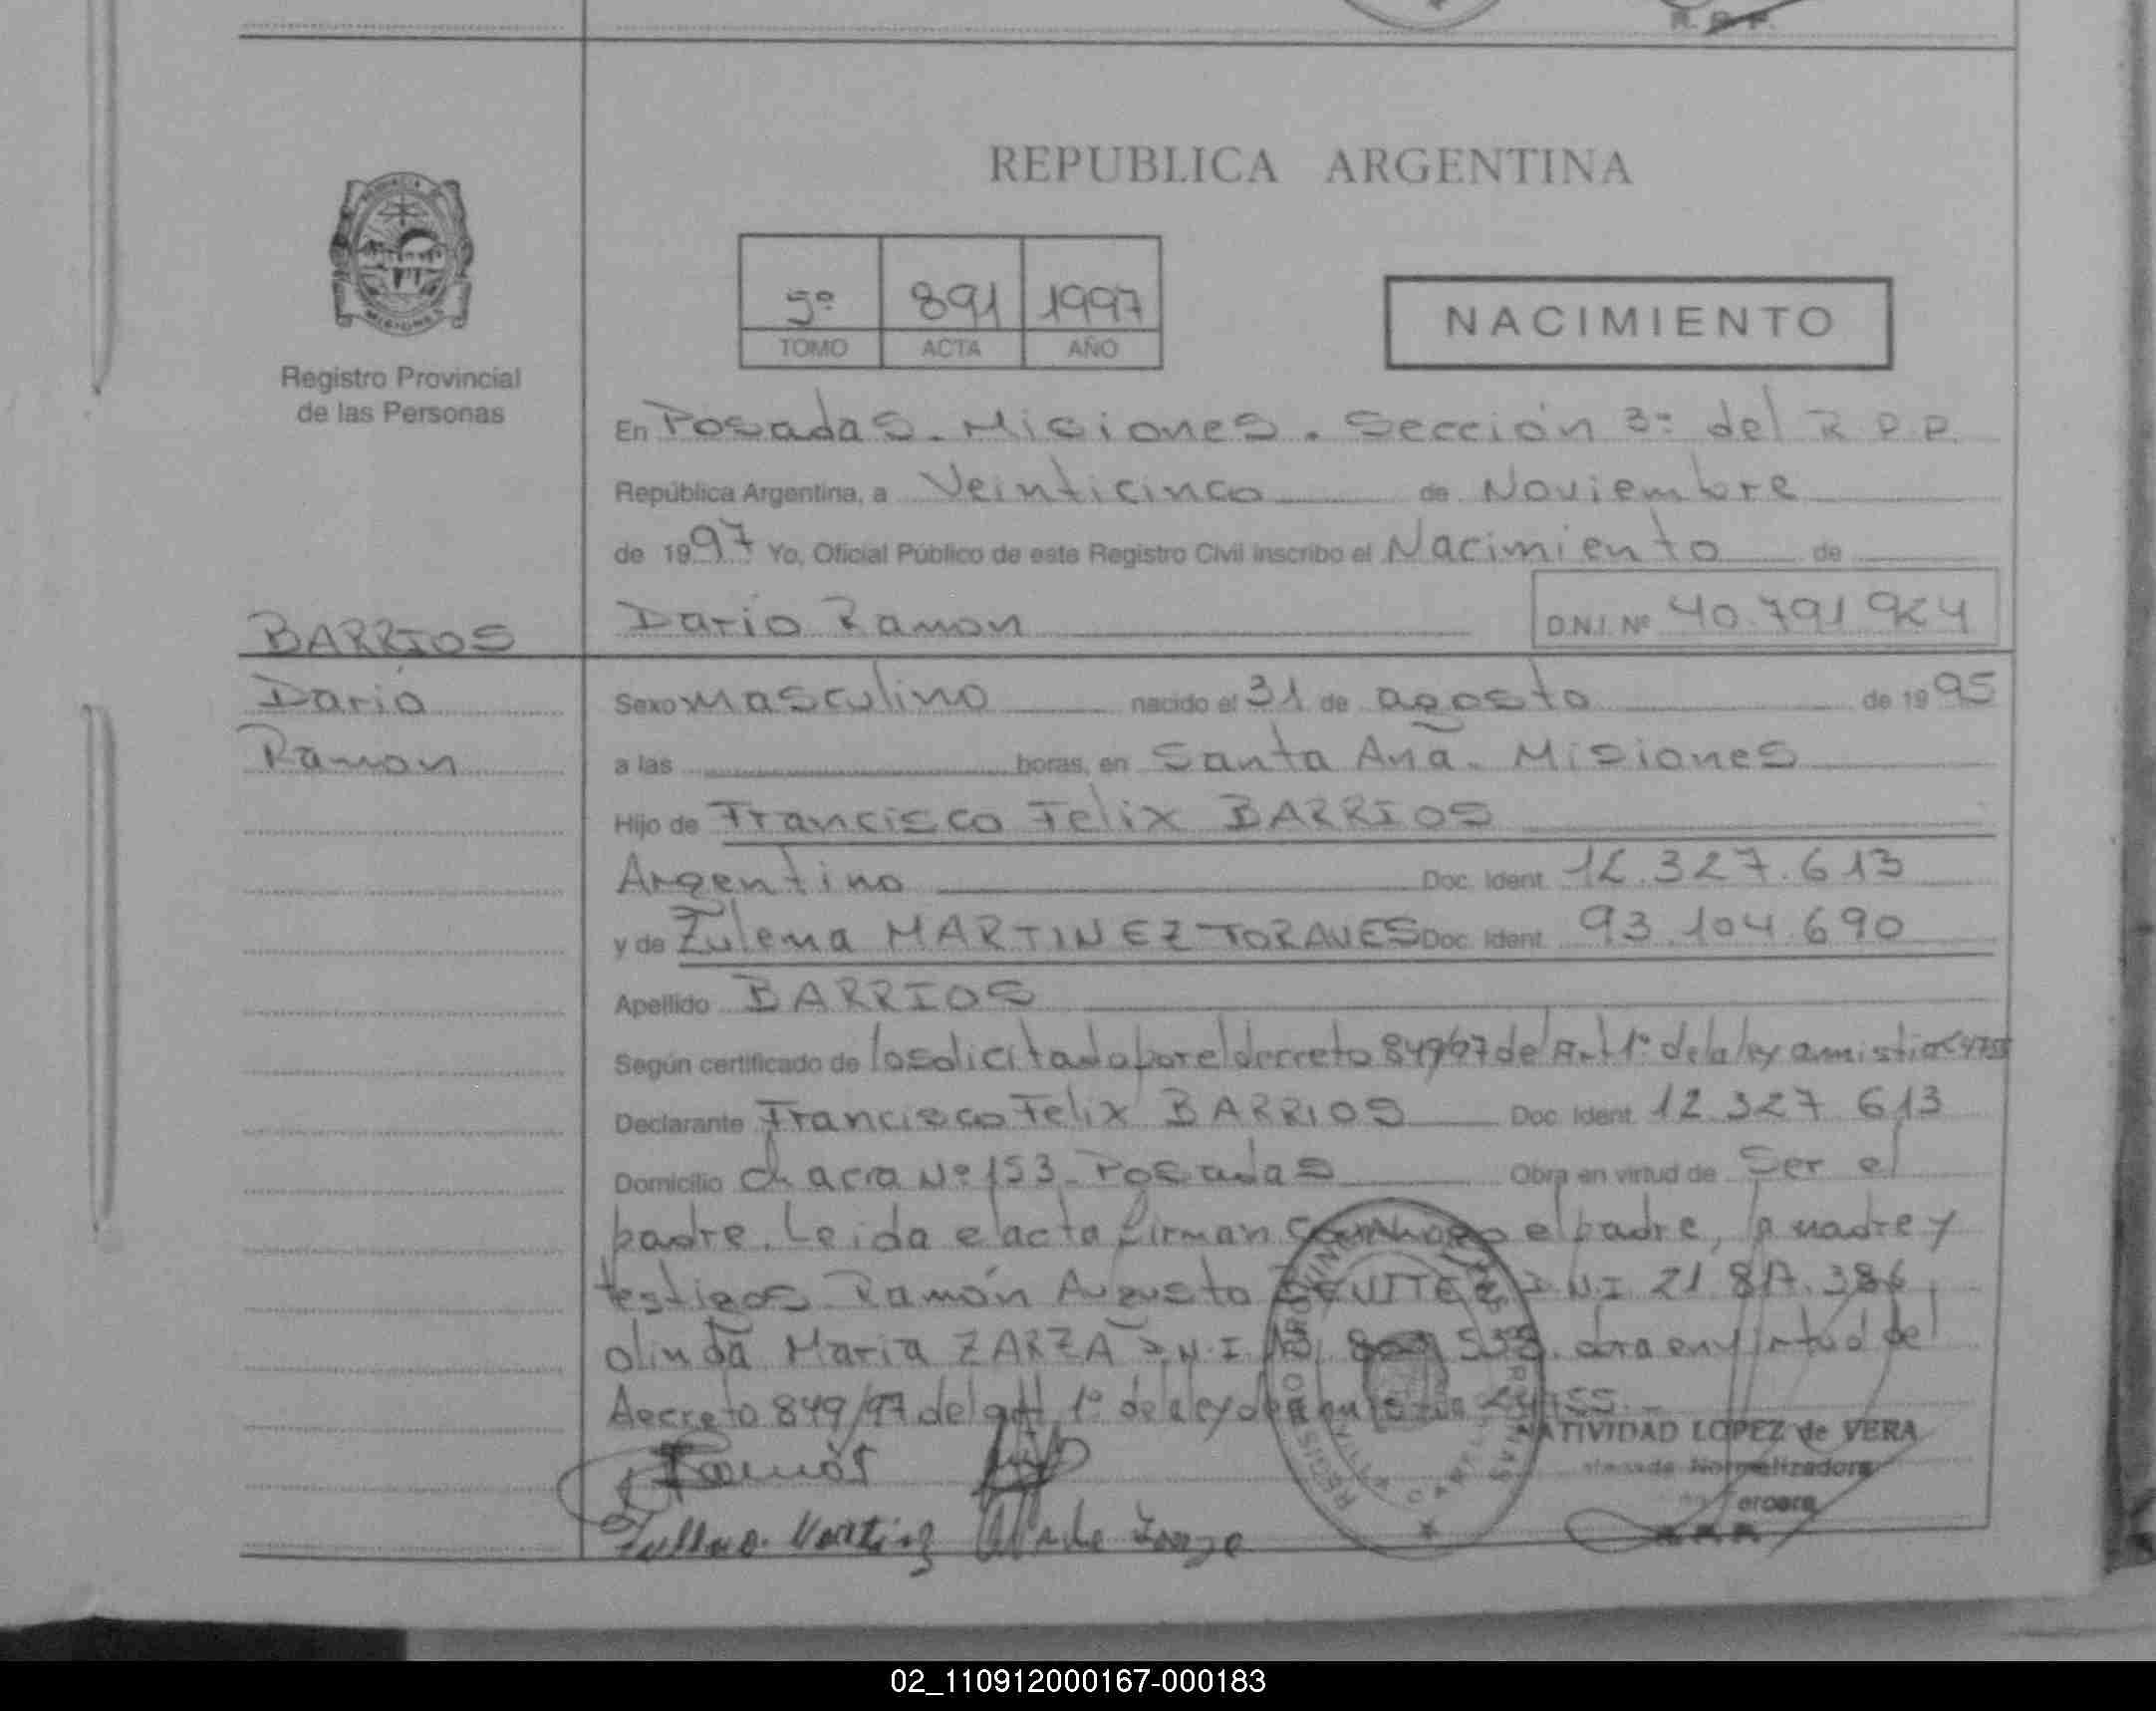 REPUBLICA ARGENTINA
5º 891 1997
TOMO ACTA AÑO
NACIMIENTO
Registro Provincial
de las Personas
En Posadas. Misiones. Sección 3º del R.P.P.
República Argentina, a Veinticinco de Noviembre
de 1997 Yo, Oficial Público de este Registro Civil inscribo el Nacimiento de
BARRIOS
Dario
Ramon
Dario Ramon D.N.I. Nº 40.791.924
Sexo masculino nacido el 31 de agosto de 1995
a las horas, en Santa Ana. Misiones
Hijo de Francisco Felix BARRIOS
Argentino Doc. Ident. 12.327.613
y de Zulema MARTINEZ Doc. Ident. 93.104.690
Apellido BARRIOS
Según certificado de lo solicitado por el decreto 849/97 del Art 1º de la ley amistia
Declarante Francisco Felix BARRIOS Doc. Ident. 12.327 613
Domicilio chacra Nº 153. Posadas Obra en virtud de Ser el
padre. Leida el acta firman conmigo el padre, la madre y
testigos Ramón Augusto D.N.I 21 817.386
olinda Maria ZARZA D.N.I. obra en virtud del
Decreto 849/97 del art 1º de la ley de
NATIVIDAD LOPEZ de VERA
Normalizadora
Tercera
Ramón
02_110912000167-000183